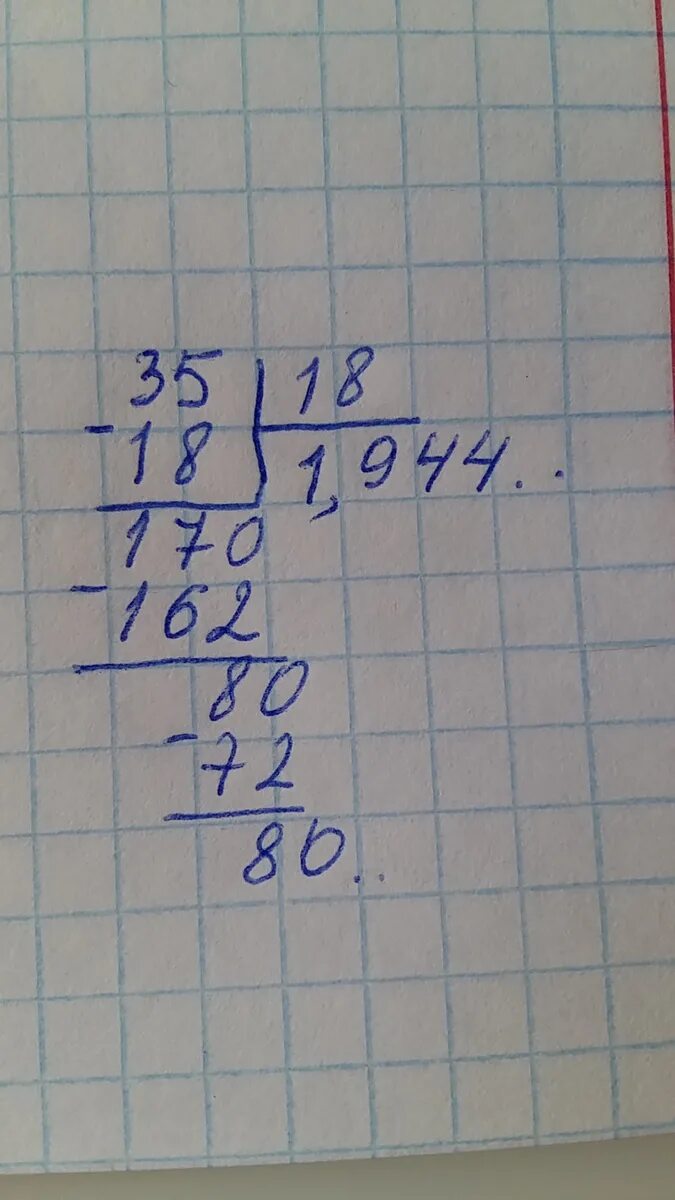 35 | 18
-18 | 1,944..
170
-162
80
-72
80..